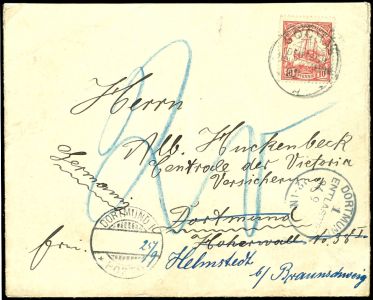 Herrn
Alb. Huckenbeck
Centrale der Victoria
Versicherung
Germany
Dortmund
Hoherwall No. 38 I.
frei.
Helmstedt
b/ Braunschweig
DORTMUND
25/9
DORTMUND
1
ENTLASSEN
10